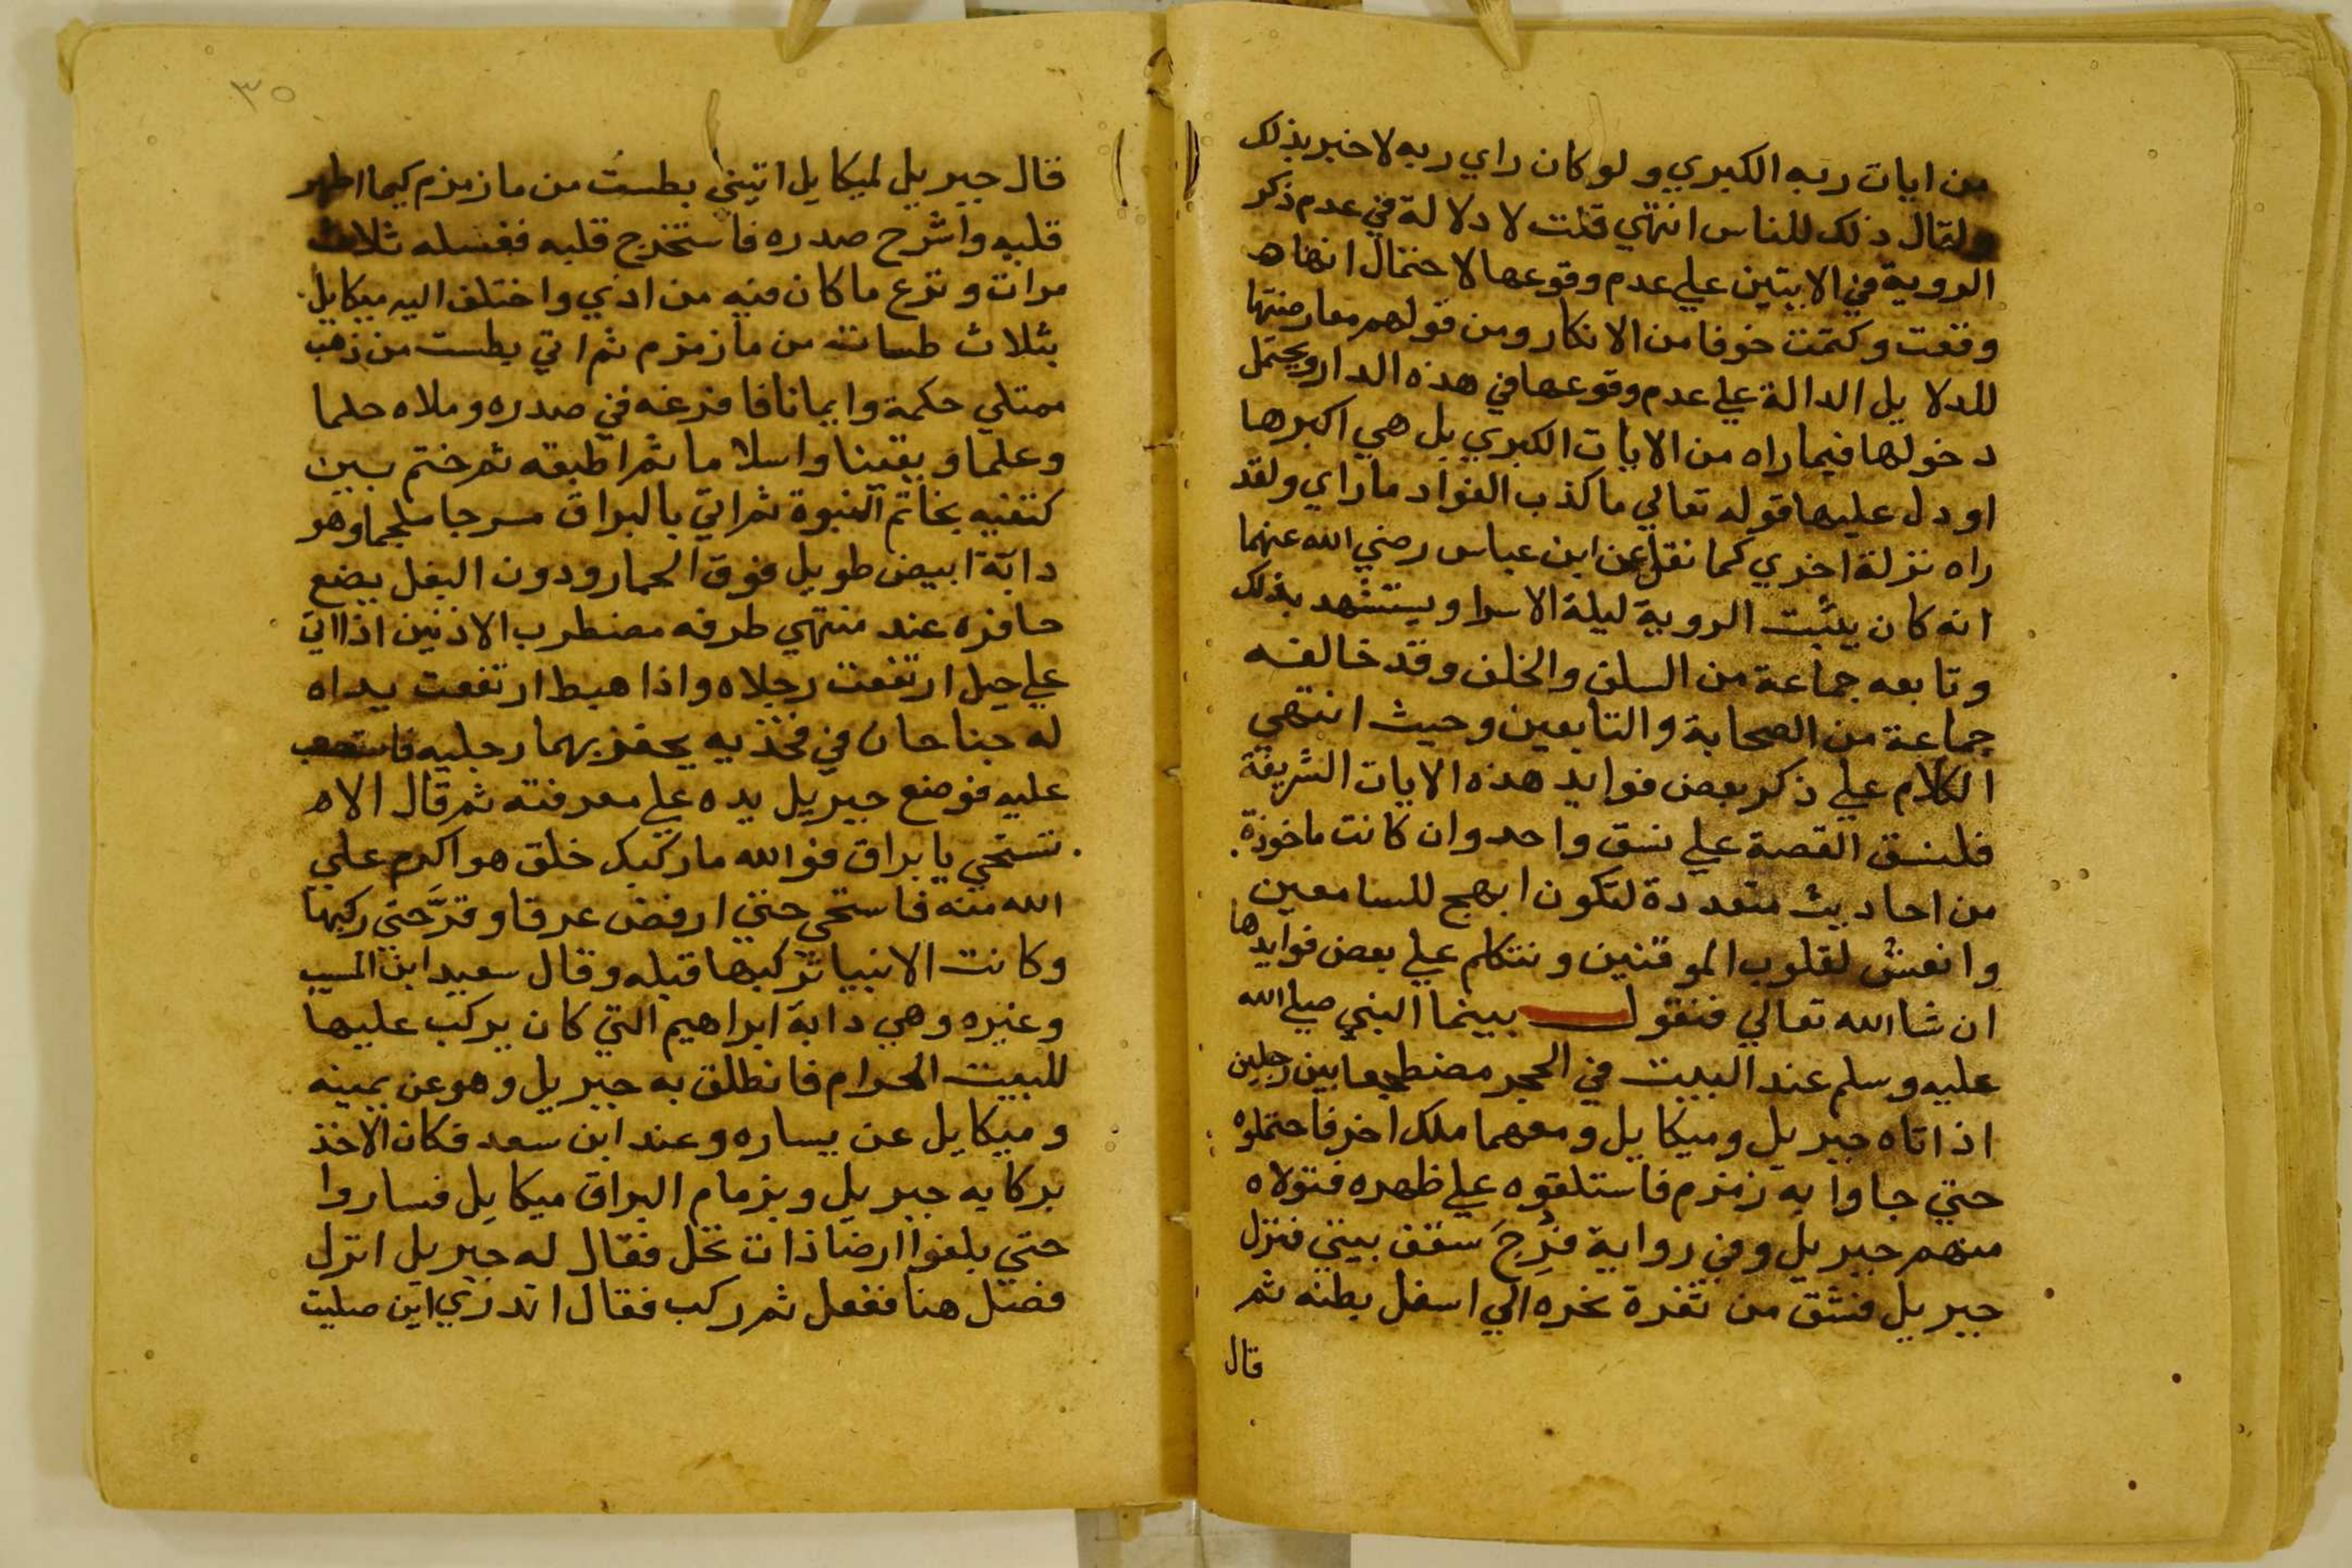 من ايات ربه الكبري ولو كان راي ربه لاخبر بذلك
ولقال ذلك للناس انتهي قلت لا دلالة في عدم ذكر
الروية في الايتين علي عدم وقوعها لاحتمال انها
وقعت وكتمت خوفا من الانكار ومن قولهم معارضتها
للدلايل الدالة علي عدم وقوعها في هذه الدار ويحتمل
دخولها فيما راه من الايات الكبري بل هي اكبرها
او دل عليها قوله تعالي ما كذب الفواد ما راي ولقد
راه نزلة اخري كما نقل عن ابن عباس رضي الله عنهما
انه كان يثبت الروية ليلة الاسرا ويستشهد بذلك
وتابعه جماعة من السلف والخلف وقد خالفه
جماعة من الصحابة والتابعين وحيث انتهي
الكلام علي ذكر بعض فوايد هذه الايات الشريفة
فلنسق القصة علي نسق واحد وان كانت ماخوذة
من احاديث متعددة لتكون ابهج للسامعين
وانعش لقلوب الموقنين ونتكلم علي بعض فوايدها
ان شا الله تعالي فنقول بينما النبي صلي الله
عليه وسلم عند البيت في الحجر مضطجعا بين رجلين
اذ اتاه جبريل وميكايل ومعهما ملك اخر فاحتملوه
حتي جاوا به زمزم فاستلقوه علي ظهره فتولاه
منهم جبريل وفي رواية فُرِجَ سقف بيتي فنزل
جبريل فشق من ثغرة نحره الي اسفل بطنه ثم
قال
٣٠
قال جبريل لميكايل اتيني بطست من ما زمزم كيما اطهر
قلبه واشرح صدره فاستخرج قلبه فغسله ثلاث
مرات ونزع ما كان فيه من اذي واختلف اليه ميكايل
بثلاث طسات من ما زمزم ثم اتي بطست من ذهب
ممتلي حكمة وايمانا فافرغه في صدره وملاه حلما
وعلما ويقينا واسلاما ثم اطبقه ثم ختم بين
كتفيه بخاتم النبوة ثم اتي بالبراق مسرجا ملجما وهو
دابة ابيض طويل فوق الحمار ودون البغل يضع
حافره عند منتهي طرفه مضطرب الاذنين اذا اتي
علي جبل ارتفعت رجلاه واذا هبط ارتفعت يداه
له جناحان في فخذيه يحفز بهما رجليه فاستصعب
عليه فوضع جبريل يده علي معرفته ثم قال الا
تستحي يا براق فوالله ما ركبك خلق هو اكرم علي
الله منه فاستحي حتي ارفض عرقا وقرَّ حتي ركبها
وكانت الانبيا تركبها قبله وقال سعيد ابن المسيب
وغيره وهي دابة ابراهيم التي كان يركب عليها
للبيت الحرام فانطلق به جبريل وهو عن يمينه
وميكايل عن يساره وعند ابن سعد فكان الاخذ
بركابه جبريل وبزمام البراق ميكايل فساروا
حتي بلغوا ارضا ذات نخل فقال له جبريل انزل
فصل هنا ففعل ثم ركب فقال اتدري اين صليت